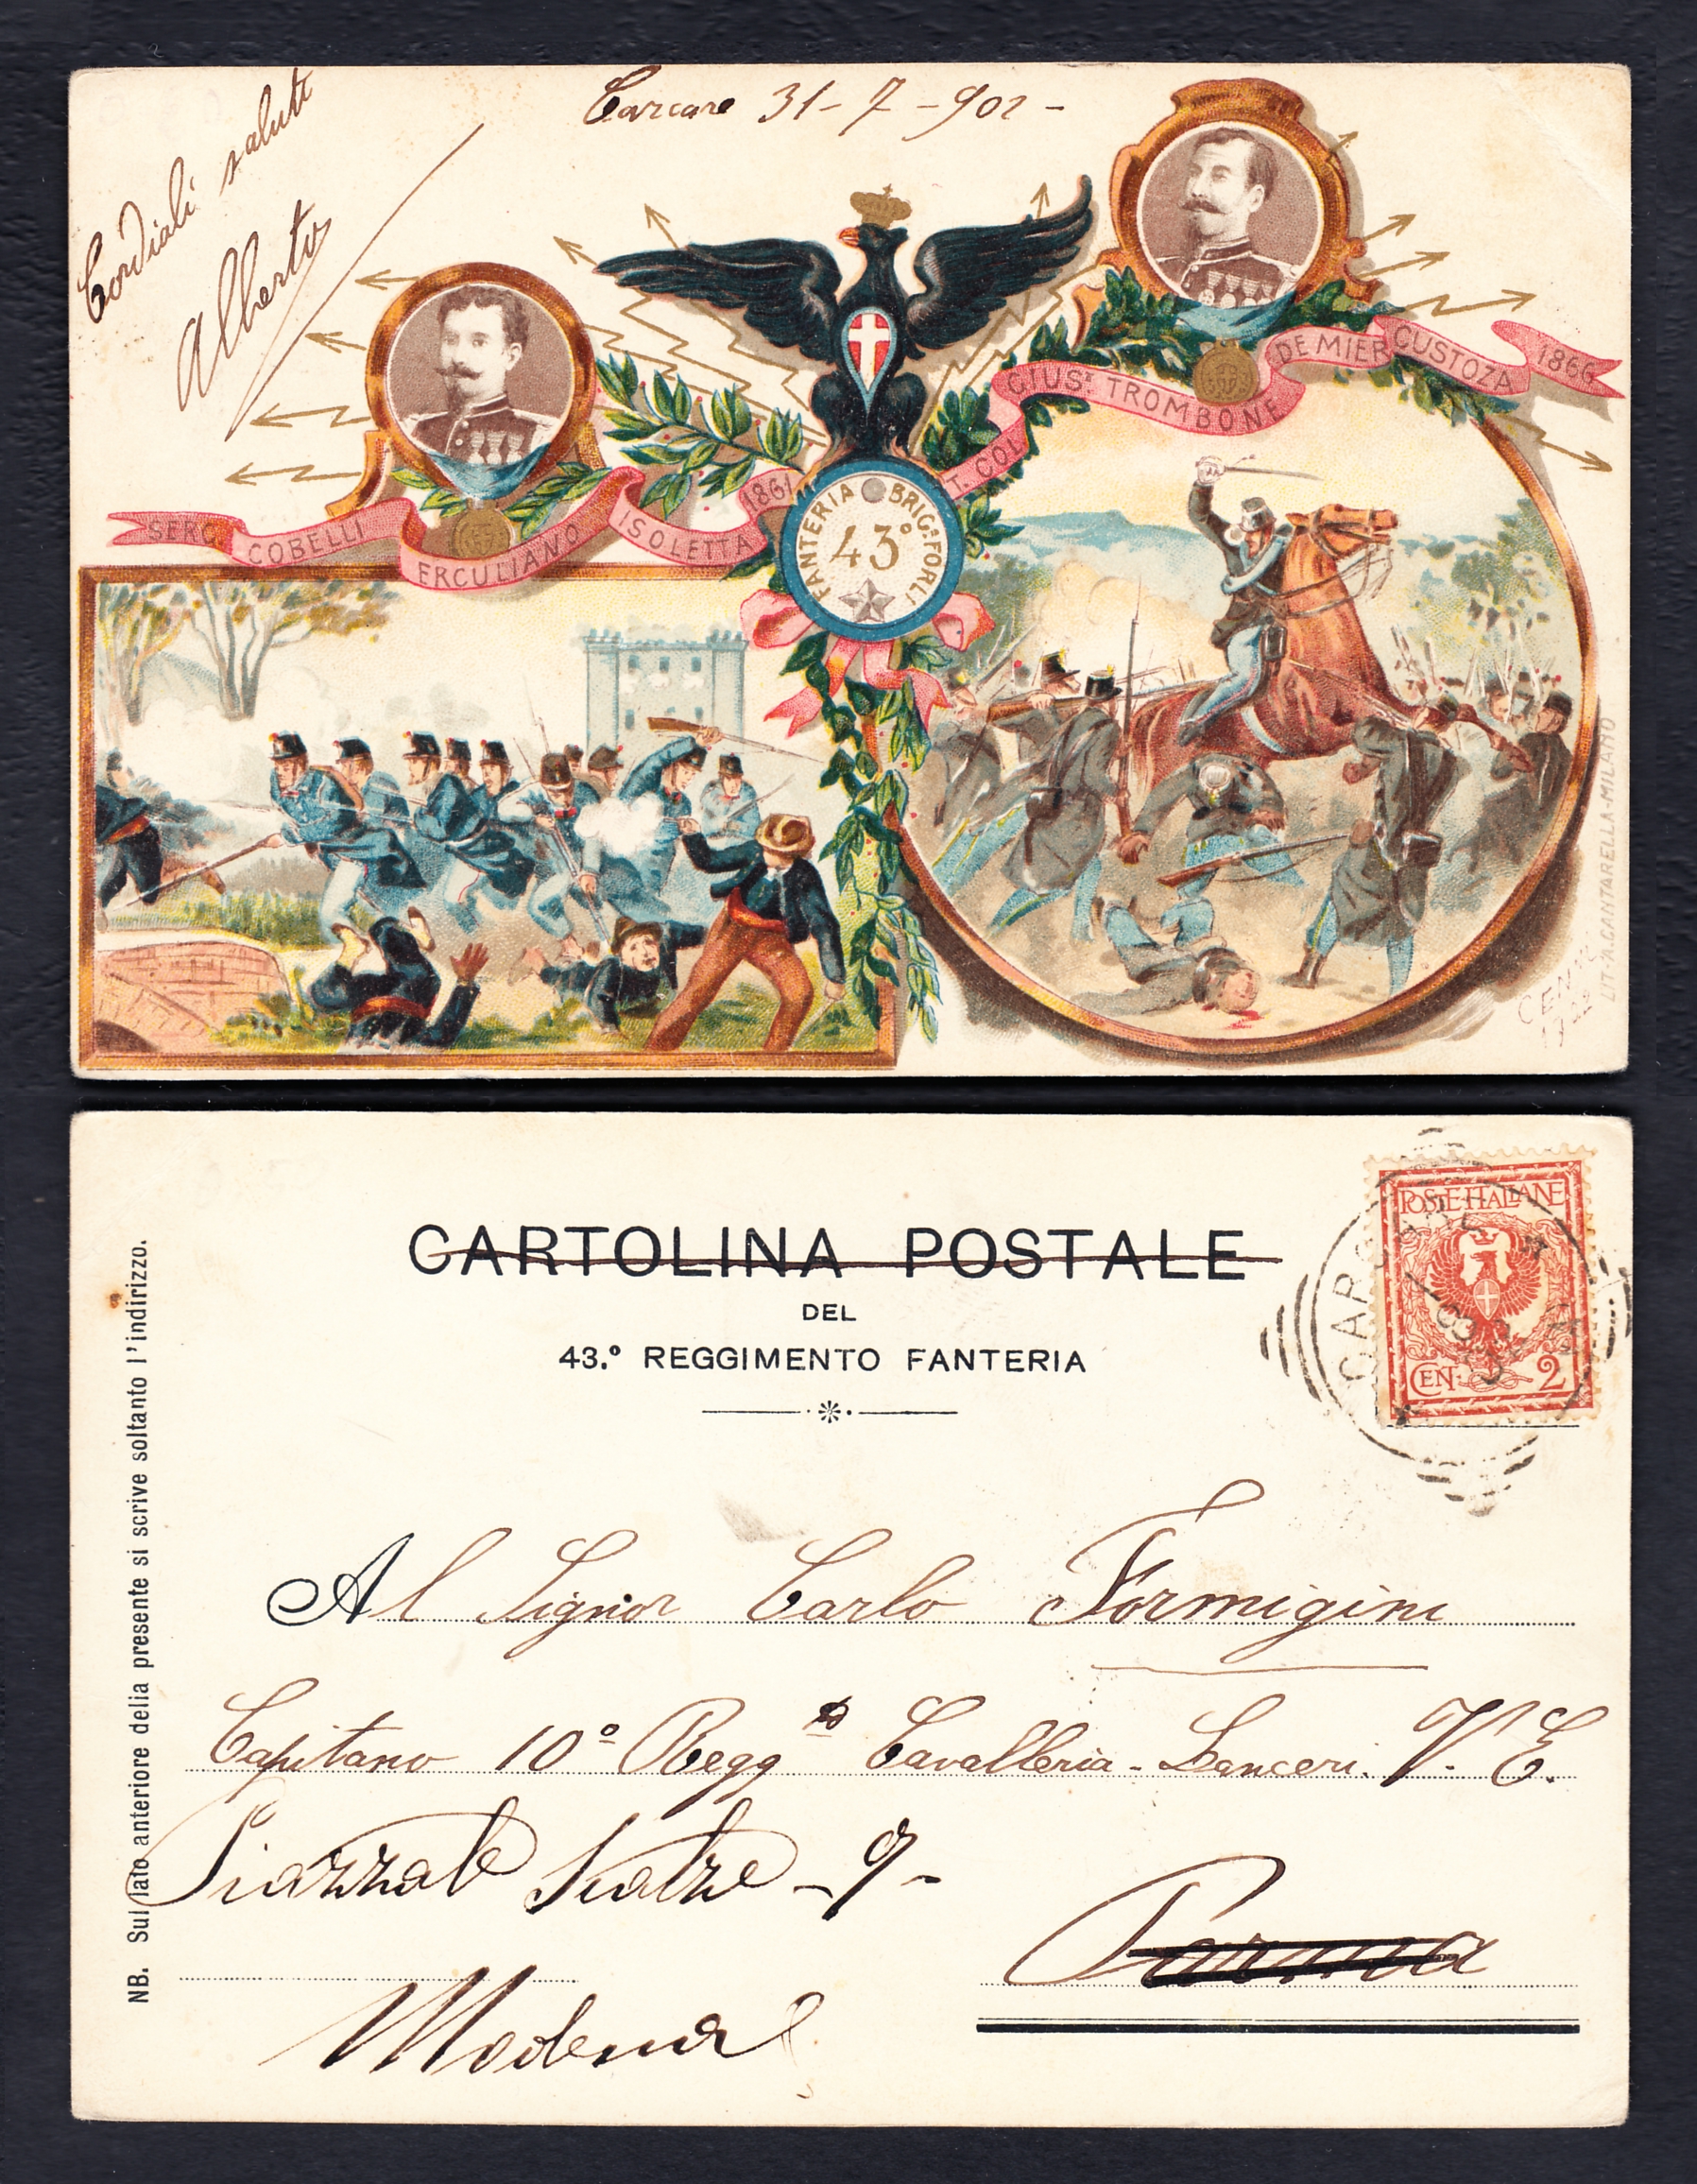 Carcare 31-7-902-
Cordiali saluti
Alberto
SERG COBELLI ERCULIANO ISOLETTA 1861
T. COL GIUSE TROMBONE DE MIER CUSTOZA 1866
FANTERIA BRIGA FORLI
43°
LIT. A. CANTARELLA-MILANO
POSTE ITALIANE
CENT. 2
CARCARE
CARTOLINA POSTALE
DEL
43.° REGGIMENTO FANTERIA
NB. Sul lato anteriore della presente si scrive soltanto l'indirizzo.
Al Signor Carlo Formigini
Capitano 10° Regg° Cavalleria - Lancieri. V. E.
Piazzale - 9 -
Parma
Modena